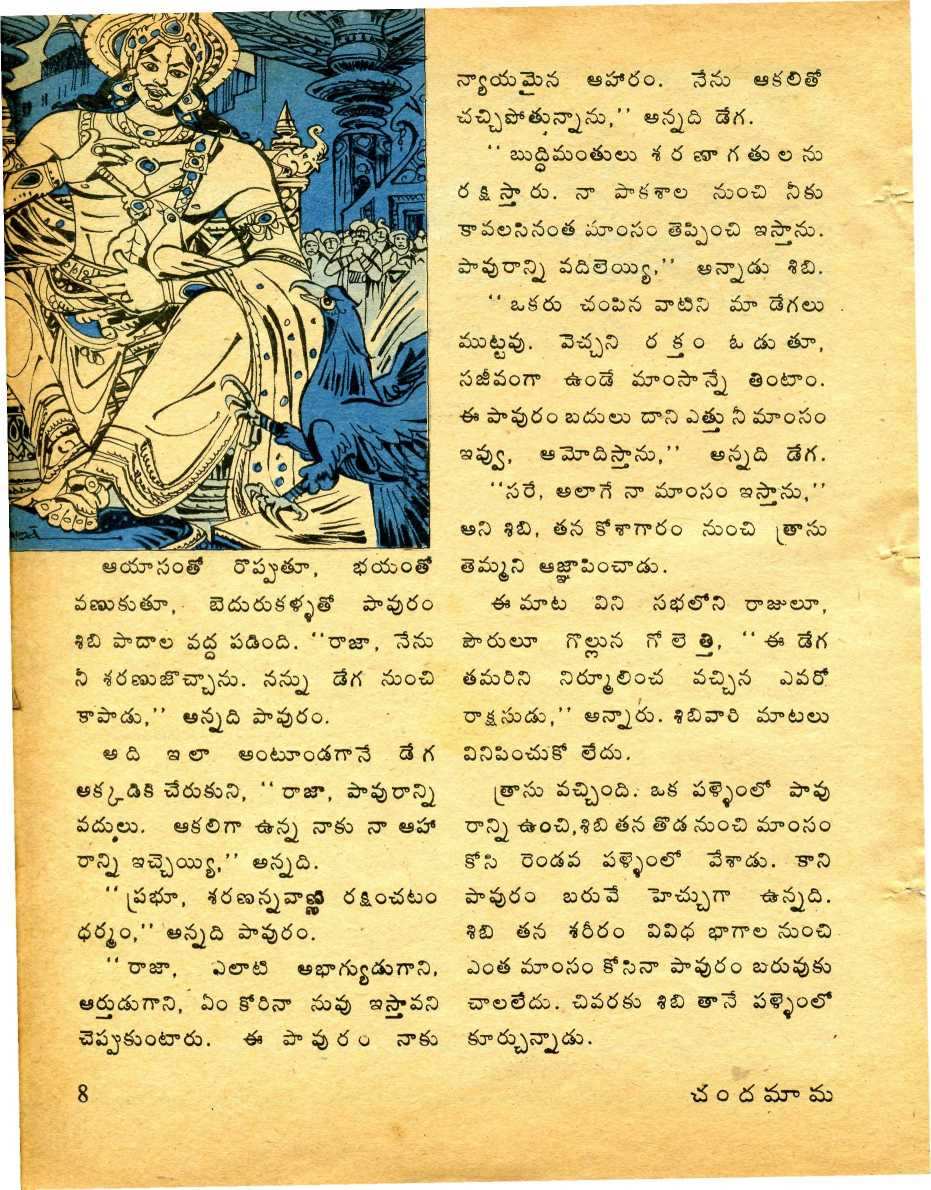 ఆయాసంతో రొప్పుతూ, భయంతో
వణుకుతూ, బెదురుకళ్ళతో పావురం
శిబి పాదాల వద్ద పడింది. ‘‘రాజా, నేను
నీ శరణుజొచ్చాను. నన్ను డేగ నుంచి
కాపాడు,’’ అన్నది పావురం.
అది ఇలా అంటూండగానే డేగ
అక్కడికి చేరుకుని, ‘‘రాజా, పావురాన్ని
వదులు. ఆకలిగా ఉన్న నాకు నా ఆహా
రాన్ని ఇచ్చెయ్యి,’’ అన్నది.
‘‘ప్రభూ, శరణన్నవాణ్ణి రక్షించటం
ధర్మం,’’ అన్నది పావురం.
‘‘రాజా, ఎలాటి అభాగ్యుడుగాని,
ఆర్తుడుగాని, ఏం కోరినా నువు ఇస్తావని
చెప్పుకుంటారు. ఈ పావురం నాకు
న్యాయమైన ఆహారం. నేను ఆకలితో
చచ్చిపోతున్నాను,’’ అన్నది డేగ.
‘‘బుద్ధిమంతులు శరణాగతులను
రక్షిస్తారు. నా పాకశాల నుంచి నీకు
కావలసినంత మాంసం తెప్పించి ఇస్తాను.
పావురాన్ని వదిలెయ్యి,’’ అన్నాడు శిబి.
‘‘ఒకరు చంపిన వాటిని మా డేగలు
ముట్టవు. వెచ్చని రక్తం ఓడుతూ,
సజీవంగా ఉండే మాంసాన్నే తింటాం.
ఈ పావురం బదులు దాని ఎత్తు నీ మాంసం
ఇవ్వు, ఆమోదిస్తాను,’’ అన్నది డేగ.
‘‘సరే, అలాగే నా మాంసం ఇస్తాను,’’
అని శిబి, తన కోశాగారం నుంచి త్రాసు
తెమ్మని ఆజ్ఞాపించాడు.
ఈ మాట విని సభలోని రాజులూ,
పౌరులూ గొల్లున గోలెత్తి, ‘‘ఈ డేగ
తమరిని నిర్మూలించ వచ్చిన ఎవరో
రాక్షసుడు,’’ అన్నారు. శిబివారి మాటలు
వినిపించుకో లేదు.
త్రాసు వచ్చింది. ఒక పళ్ళెంలో పావు
రాన్ని ఉంచి, శిబి తన తొడ నుంచి మాంసం
కోసి రెండవ పళ్ళెంలో వేశాడు. కాని
పావురం బరువే హెచ్చుగా ఉన్నది.
శిబి తన శరీరం వివిధ భాగాల నుంచి
ఎంత మాంసం కోసినా పావురం బరువుకు
చాలలేదు. చివరకు శిబి తానే పళ్ళెంలో
కూర్చున్నాడు.
8
చందమామ